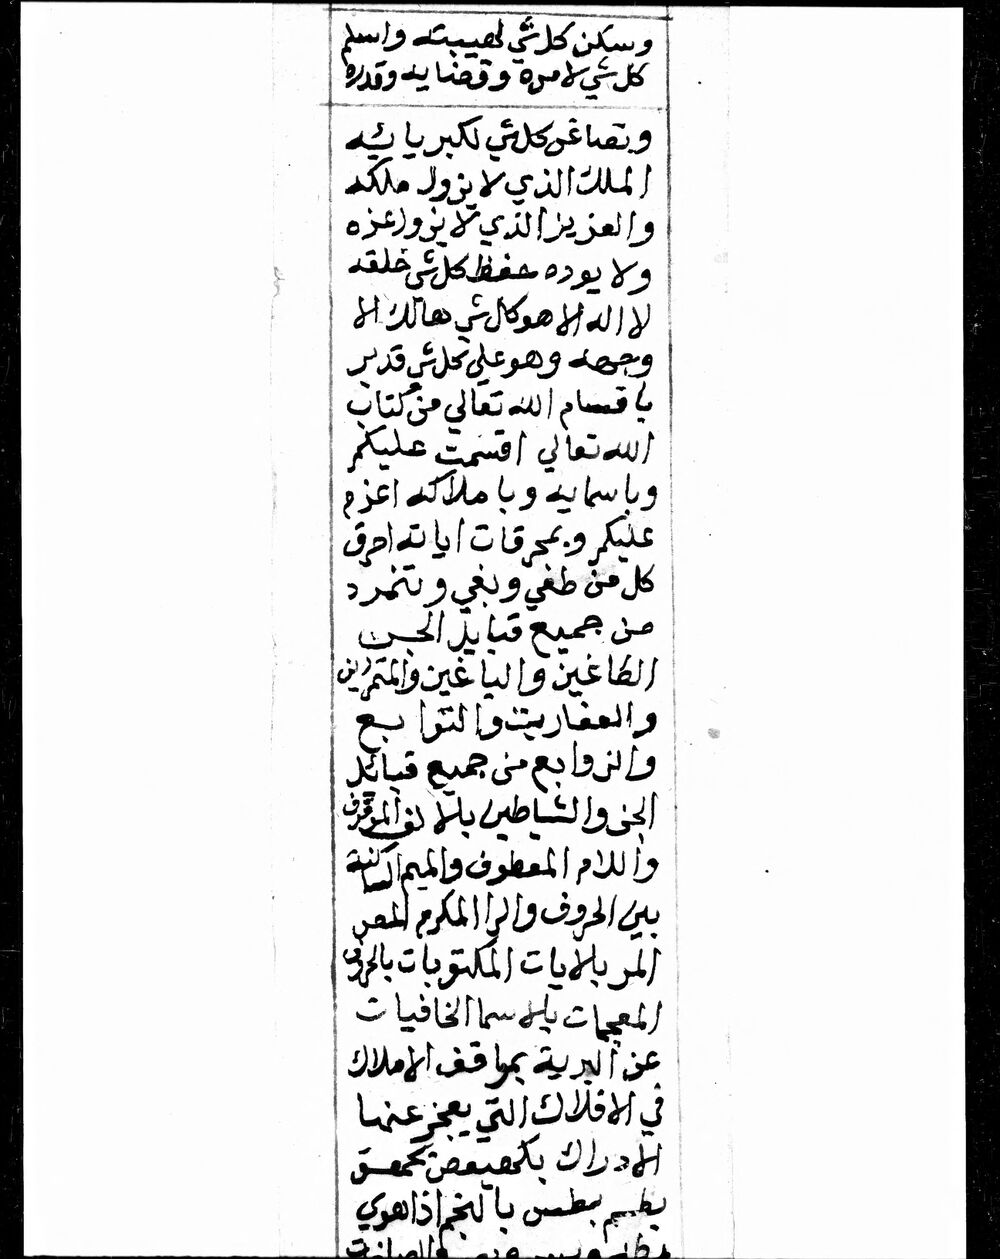 وسكن كل شي لهيبته واسلم
كل شي لامره وقضايه وقدره
وتصاغر كل شي لكبريائيه
الملك الذي لا يزول ملكه
والعزيز الذي لا يزول عزه
ولا يوده حفظ كل شي خلقه
لا اله الا هو كال شي هالك الا
وجهه وهو علي كل شي قدير
باقسام الله تعالي من كتاب
الله تعالي اقسمت عليكم
وباسمايه وباملاكه اعزم
عليكم وبمحرقات اياته احرق
كل من طغي وبغي وتنمرد
من جميع قبايل الجن
الطاغين والباغين والمتمردين
والعفاريت والتوابع
والزوابع من جميع قبائل
الجن والشياطين بالالف
واللام المعطوف والميم الساكنة
بين الحروف والرا المكرم المص
المر بالايات المكتوبات بالحروف
المعجمات بالاسما الخافيات
عن البرية بمواقف الاملاك
في الافلاك التي يعجز عنها
الادراك بكهيعص بحمعسق
بطسم بطس بالنجم اذا هوي